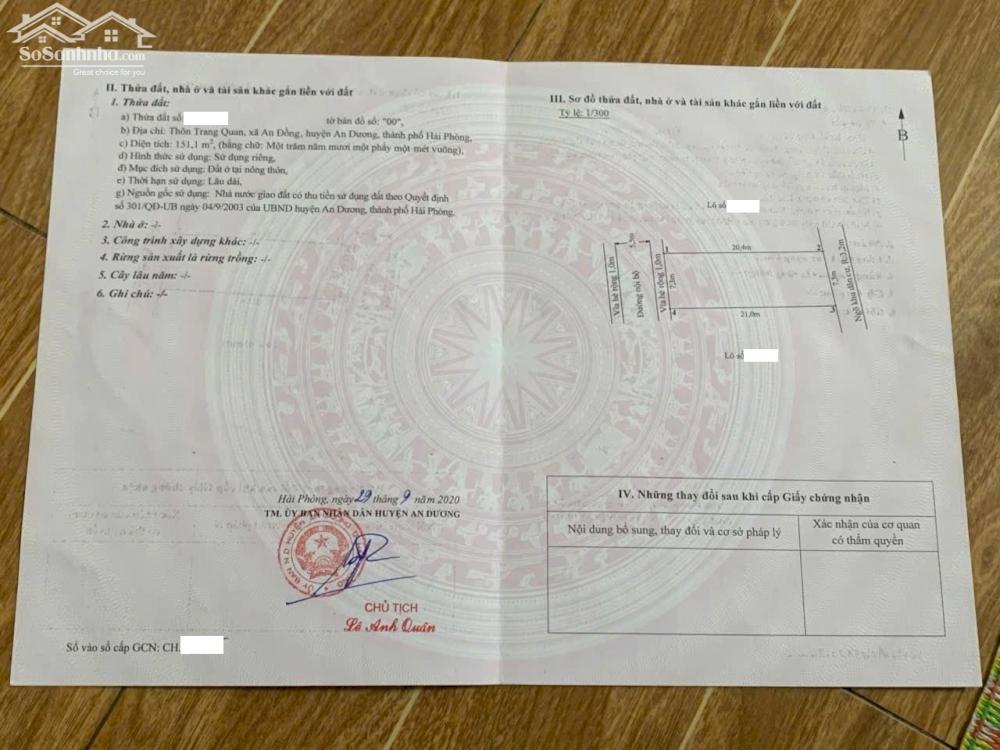 SoSanhnha.com
Great choice for you
II. Thửa đất, nhà ở và tài sản khác gắn liền với đất
1. Thửa đất:
a) Thửa đất số tờ bản đồ số: "00",
b) Địa chỉ: Thôn Trang Quan, xã An Đồng, huyện An Dương, thành phố Hải Phòng,
c) Diện tích: 151,1 m², (bằng chữ: Một trăm năm mươi một phẩy một mét vuông),
d) Hình thức sử dụng: Sử dụng riêng,
đ) Mục đích sử dụng: Đất ở tại nông thôn,
e) Thời hạn sử dụng: Lâu dài,
g) Nguồn gốc sử dụng: Nhà nước giao đất có thu tiền sử dụng đất theo Quyết định
số 301/QĐ-UB ngày 04/9/2003 của UBND huyện An Dương, thành phố Hải Phòng.
2. Nhà ở: -/-
3. Công trình xây dựng khác: -/-
4. Rừng sản xuất là rừng trồng: -/-
5. Cây lâu năm: -/-
6. Ghi chú: -/-
Hải Phòng, ngày 29 tháng 9 năm 2020
TM. ỦY BAN NHÂN DÂN HUYỆN AN DƯƠNG
CHỦ TỊCH
Lê Anh Quân
Số vào sổ cấp GCN: CH.
III. Sơ đồ thửa đất, nhà ở và tài sản khác gắn liền với đất
Tỷ lệ: 1/300
B
Lô số
Vỉa hè rộng 1,0m
Đường nội bộ
5,5m
Vỉa hè rộng 1,0m
7,3m
1
20,4m
2
7,3m
Ngõ khu dân cư, R:3,2m
4
21,0m
3
Lô số
IV. Những thay đổi sau khi cấp Giấy chứng nhận
Nội dung bổ sung, thay đổi và cơ sở pháp lý
Xác nhận của cơ quan
có thẩm quyền